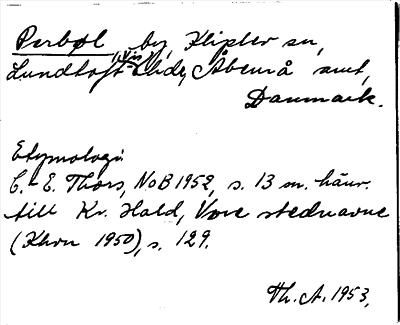 Perbøl, by, Kliplev sn,
Lundtoft Vis-Hde, Åbenrå amt,
Danmark.
Etymologi:
C.-E. Thors, NoB 1952, s. 13 m. hänv.
till Kr. Hald, Vore stednavne
(Khvn 1950), s. 129.
Th. A. 1953.